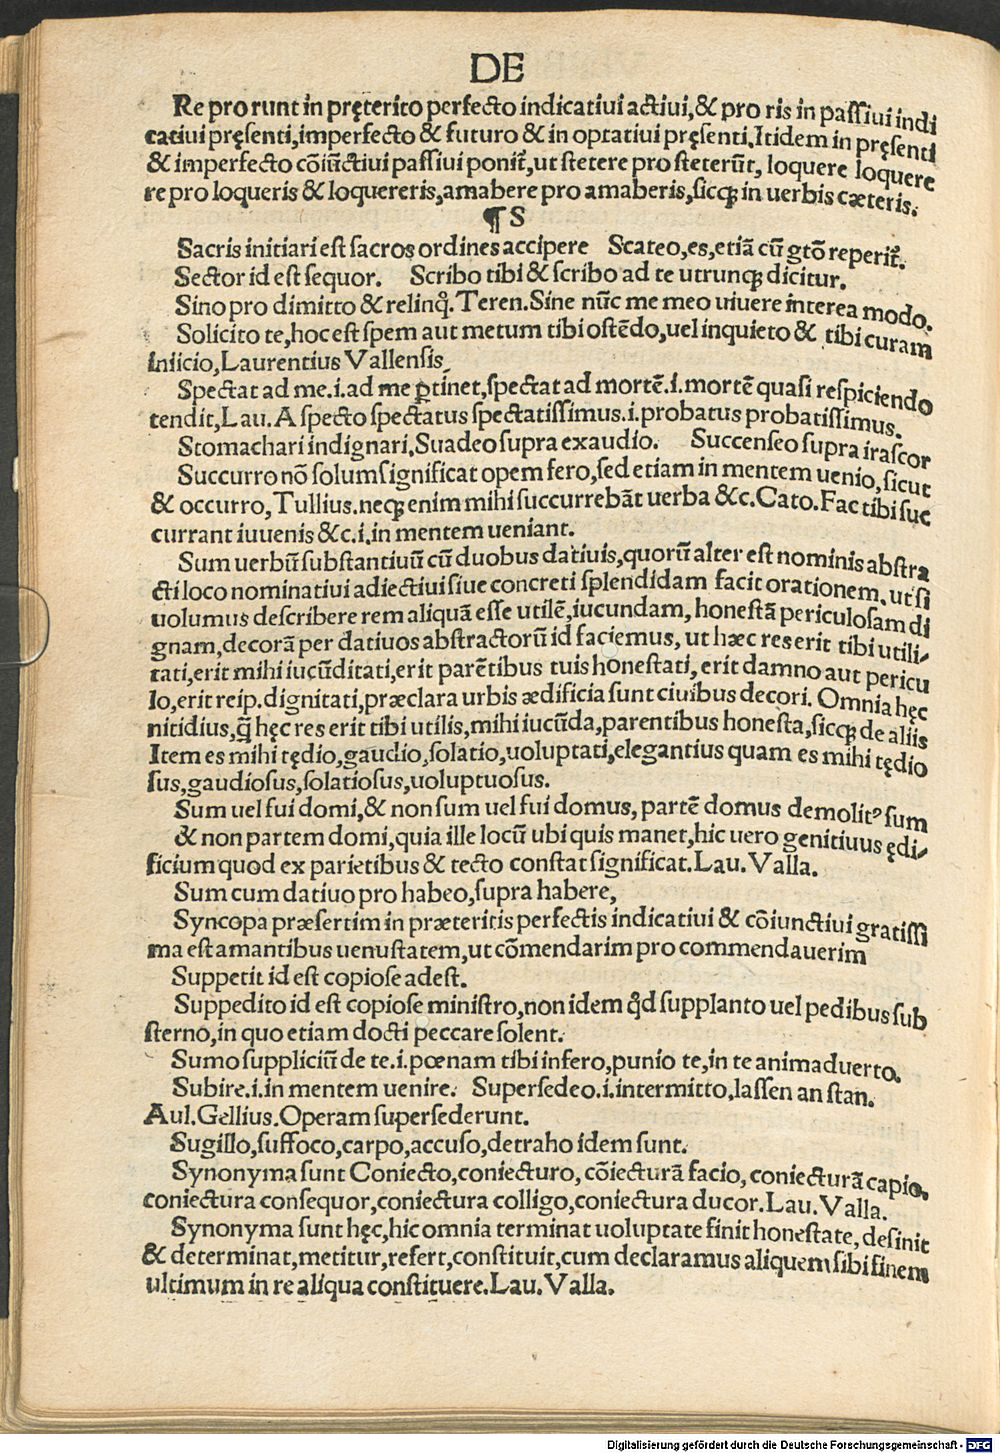 DE
Re pro runt in pręterito perfecto indicatiui actiui,& pro ris in paſſiui indi
catiui pręſenti,imperfecto & futuro & in optatiui pręſenti.Itidem in pręſenti
& imperfecto cōiūctiui paſſiui ponit᷑,ut ſtetere pro ſteterūt, loquere loquere
re pro loqueris & loquereris,amabere pro amaberis,ſicꝗ in uerbis cæteris.
¶ S
Sacris initiari eſt ſacros ordines accipere Scateo,es,etiā cū gtō reperit᷑.
Sector id eſt ſequor. Scribo tibi & ſcribo ad te utrunꝗ dicitur.
Sino pro dimitto & relinq̊. Teren.Sine nūc me meo uiuere interea modo.
Solicito te,hoc eſt ſpem aut metum tibi oſtēdo,uel inquieto & tibi curam
iniicio,Laurentius Vallenſis
Spectat ad me.i.ad me ꝑtinet,ſpectat ad mortē.i.mortē quaſi reſpiciendo
tendit,Lau.A ſpecto ſpectatus ſpectatiſſimus.i.probatus probatiſſimus.
Stomachari indignari.Suadeo ſupra exaudio. Succenſeo ſupra iraſcor
Succurro nō ſolum ſignificat opem fero,ſed etiam in mentem uenio,ſicut
& occurro,Tullius.neꝗ enim mihi ſuccurrebāt uerba &c.Cato.Fac tibi ſuc
currant iuuenis &c.i.in mentem ueniant.
Sum uerbū ſubſtantiuū cū duobus datiuis,quorū alter eſt nominis abſtra
cti loco nominatiui adiectiui ſiue concreti ſplendidam facit orationem.ut ſi
uolumus deſcribere rem aliquā eſſe utilē,iucundam, honeſtā periculoſam di
gnam,decorā per datiuos abſtractorū id faciemus, ut hæc res erit tibi utili-
tati,erit mihi iucūditati,erit parētibus tuis honeſtati, erit damno aut pericu
lo,erit reip.dignitati,præclara urbis ædificia ſunt ciuibus decori. Omnia hęc
nitidius,q̄ hęc res erit tibi utilis,mihi iucūda,parentibus honeſta,ſicꝗ de aliis
Item es mihi tędio,gaudio,ſolatio,uoluptati,elegantius quam es mihi tędio
ſus,gaudioſus,ſolatioſus,uoluptuoſus.
Sum uel fui domi,& non ſum uel fui domus, partē domus demolitꝰ ſum
& non partem domi,quia ille locū ubi quis manet,hic uero genitiuus ędi-
ficium quod ex parietibus & tecto conſtat ſignificat.Lau.Valla.
Sum cum datiuo pro habeo,ſupra habere,
Syncopa præſertim in præteritis perfectis indicatiui & cōiunctiui gratiſſi
ma eſt amantibus uenuſtatem,ut cōmendarim pro commendauerim
Suppetit id eſt copioſe adeſt.
Suppedito id eſt copioſe miniſtro,non idem qd̄ ſupplanto uel pedibus ſub
ſterno,in quo etiam docti peccare ſolent.
Sumo ſuppliciū de te.i.pœnam tibi infero,punio te,in te animaduerto.
Subire.i.in mentem uenire. Superſedeo.i.intermitto,laſſen an ſtan.
Aul.Gellius.Operam ſuperſederunt.
Sugillo,ſuffoco,carpo,accuſo,detraho idem ſunt.
Synonyma ſunt Coniecto,coniecturo, cōiecturā facio, coniecturā capio.
coniectura conſequor,coniectura colligo,coniectura ducor.Lau.Valla.
Synonyma ſunt hęc,hic omnia terminat uoluptate finit honeſtate, deſinit
& determinat,metitur,refert,conſtituit,cum declaramus aliquem ſibi finem
ultimum in re aliqua conſtituere.Lau.Valla.
Digitalisierung gefördert durch die Deutsche Forschungsgemeinschaft - DFG